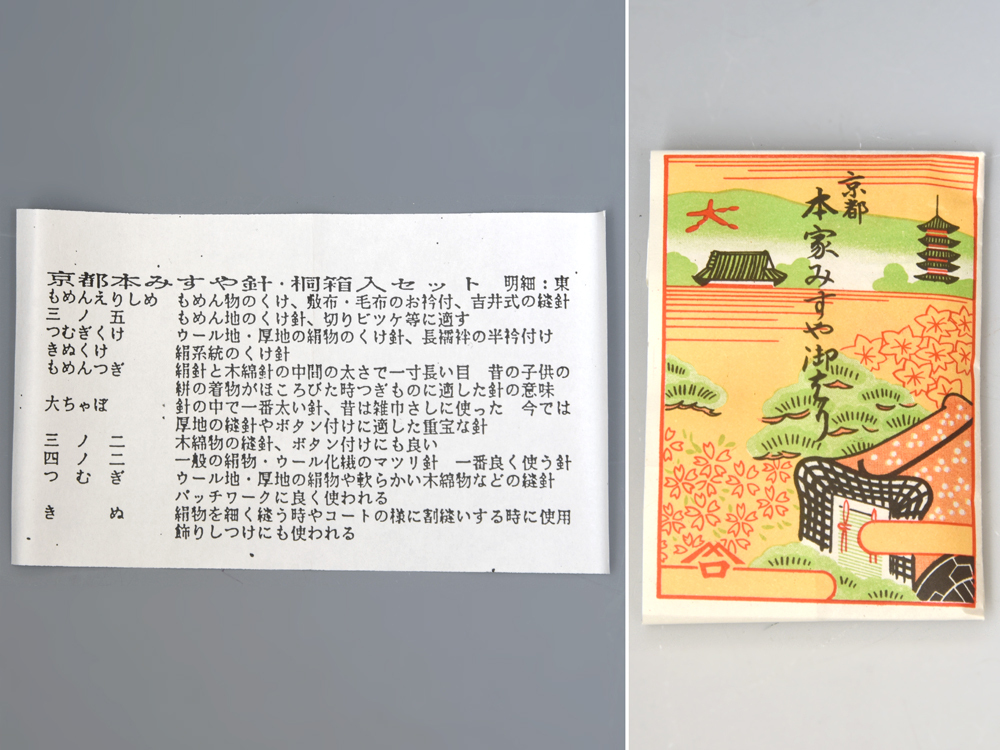 京都本みすや針・桐箱入セット　明細：東
もめんえりしめ　もめん物のくけ、敷布・毛布のお衿付、吉井式の縫針
三　ノ　五　もめん地のくけ針、切りビツケ等に適す
つむぎくけ　ウール地・厚地の絹物のくけ針、長襦袢の半衿付け
きぬくけ　絹系統のくけ針
もめんつぎ　絹針と木綿針の中間の太さで一寸長い目　昔の子供の
絣の着物がほころびた時つぎものに適した針の意味
大ちゃぼ　針の中で一番太い針、昔は雑巾さしに使った　今では
厚地の縫針やボタン付けに適した重宝な針
三　ノ　二　木綿物の縫針、ボタン付けにも良い
四　ノ　二　一般の絹物・ウール化繊のマツリ針　一番良く使う針
つ　む　ぎ　ウール地・厚地の絹物や軟らかい木綿物などの縫針
パッチワークに良く使われる
き　　ぬ　絹物を細く縫う時やコートの様に割縫いする時に使用
飾りしつけにも使われる
京都
本家みすや御はり
大